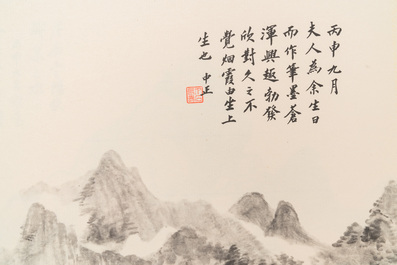 丙申九月
夫人為余生日
而作筆墨蒼
渾興趣勃發
欣對久之不
覺烟霞由坐上
生也 中正